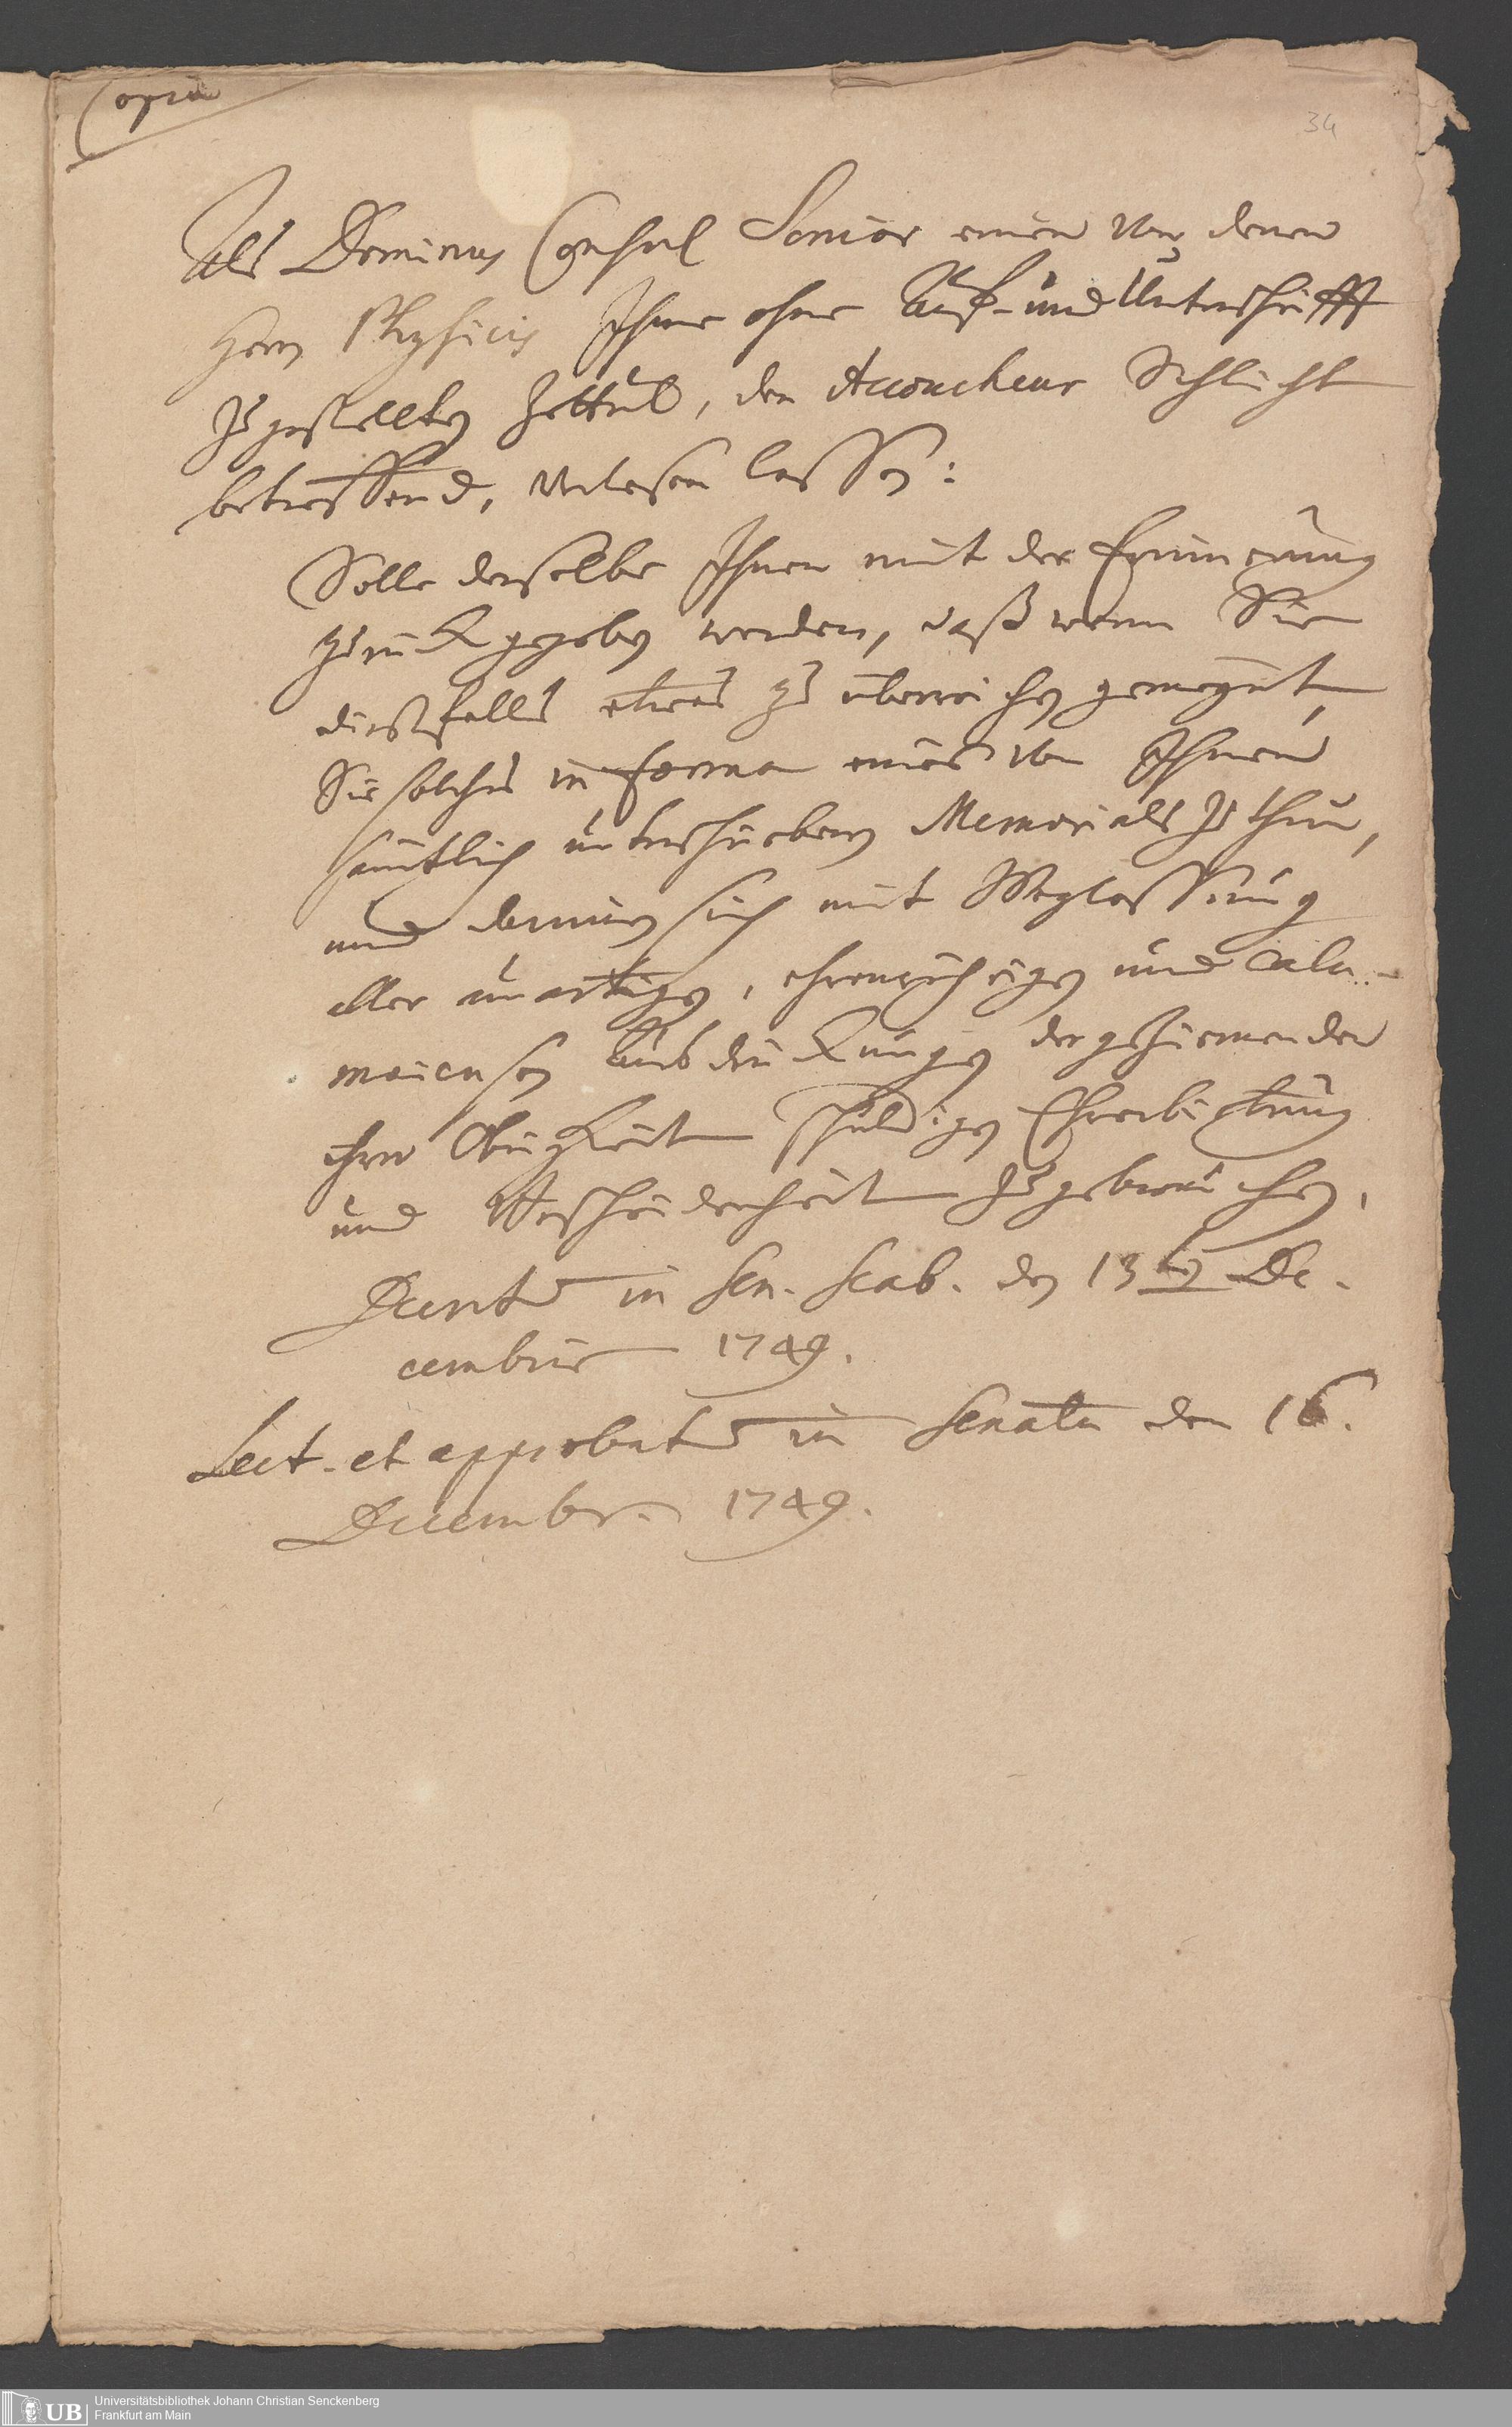 Copia
34
Als Dominus Consul Senior einen von denen
Herrn Physicis Ihme ohne Auf- und Unterschrifft
zugestellten Zettul, den Accoucheur Schlicht
betreffend, verlesen lassen:
Solle derselbe Ihnen mit der Erinnerung
zurückgegeben werden, daß wenn Sie
dießfalls etwas zu überreichen gemeynt,
Sie solches in forma eines von Ihnen
sämtlich unterschriebenen Memorials zu thun,
und darinnen sich mit Weglassung
aller unartigen, ehrenrührigen und calu-
mnieusen Ausdrückungen der geziemenden
ihrer Obrigkeit schuldigen Ehrerbietung
und Bescheidenheit zu gebrauchen.
Decret in Sen. Scab. den 13ten De-
cembris 1749.
Lect. et approbat in Senatu den 16.
Decembr. 1749.
UB
Universitätsbibliothek Johann Christian Senckenberg
Frankfurt am Main